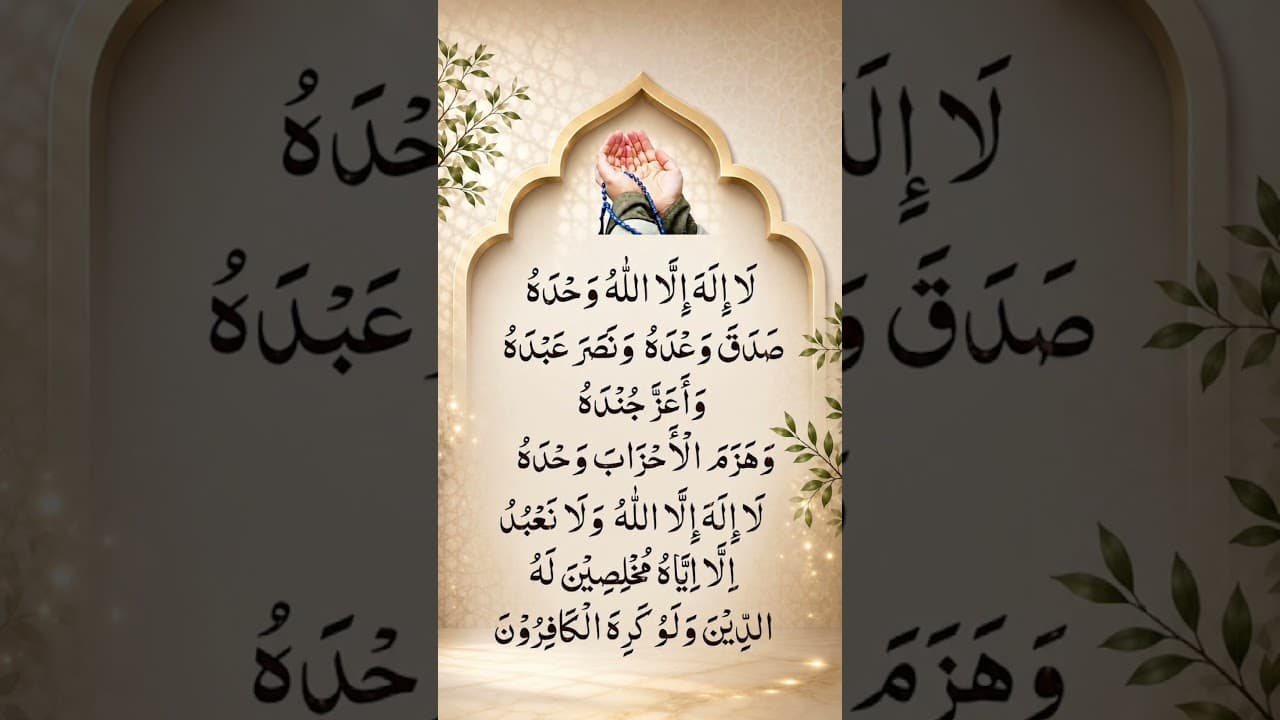 لَا إِلَهَ إِلَّا اللّٰهُ وَحْدَهُ
صَدَقَ وَعْدَهُ وَنَصَرَ عَبْدَهُ
وَأَعَزَّ جُنْدَهُ
وَهَزَمَ الْأَحْزَابَ وَحْدَهُ
لَا إِلَهَ إِلَّا اللّٰهُ وَلَا نَعْبُدُ
اِلَّا اِيَّاهُ مُخْلِصِيْنَ لَهُ
الدِّيْنَ وَلَوْ كَرِهَ الْكَافِرُوْنَ